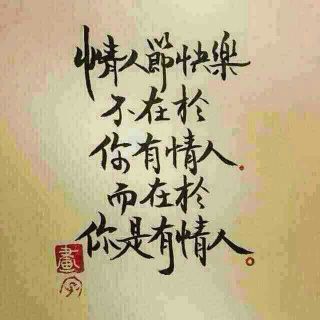 情人節快樂
不在於
你有情人.
而在於
你是有情人。
畫字